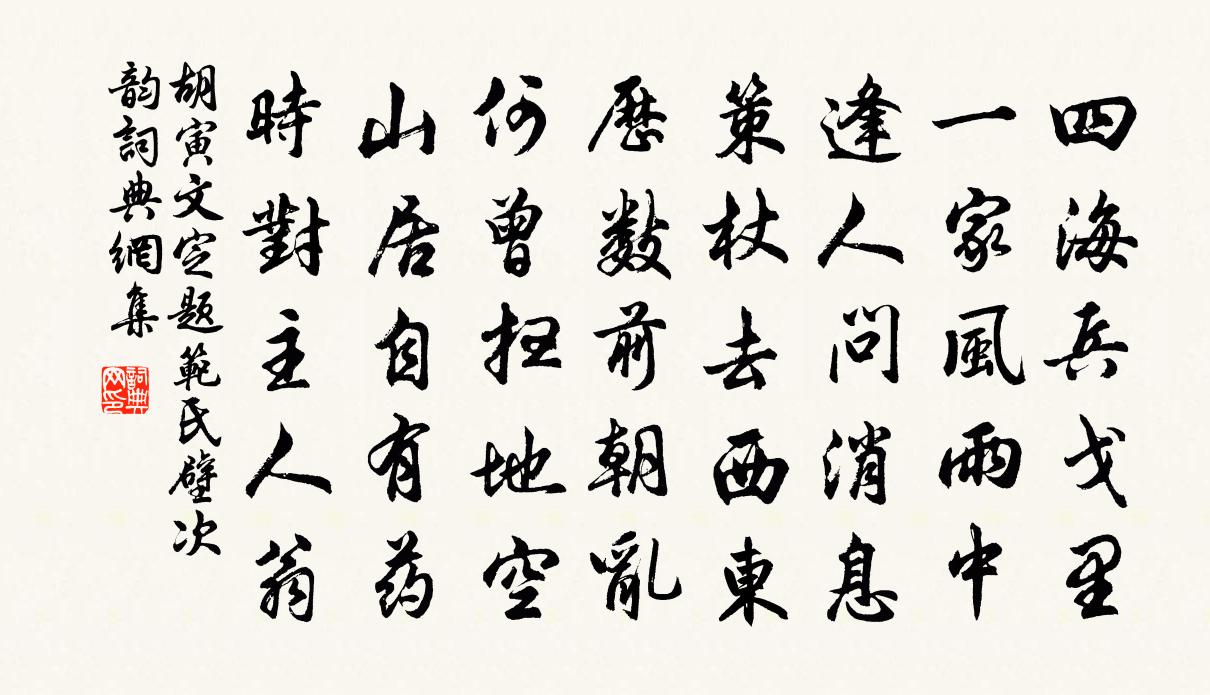 四海兵戈里
一家風雨中
逢人問消息
策杖去西東
歷數前朝亂
何曾掃地空
山居自有药
時對主人翁
胡寅文定題範氏壁次
韵詞典網集
詞典
网印